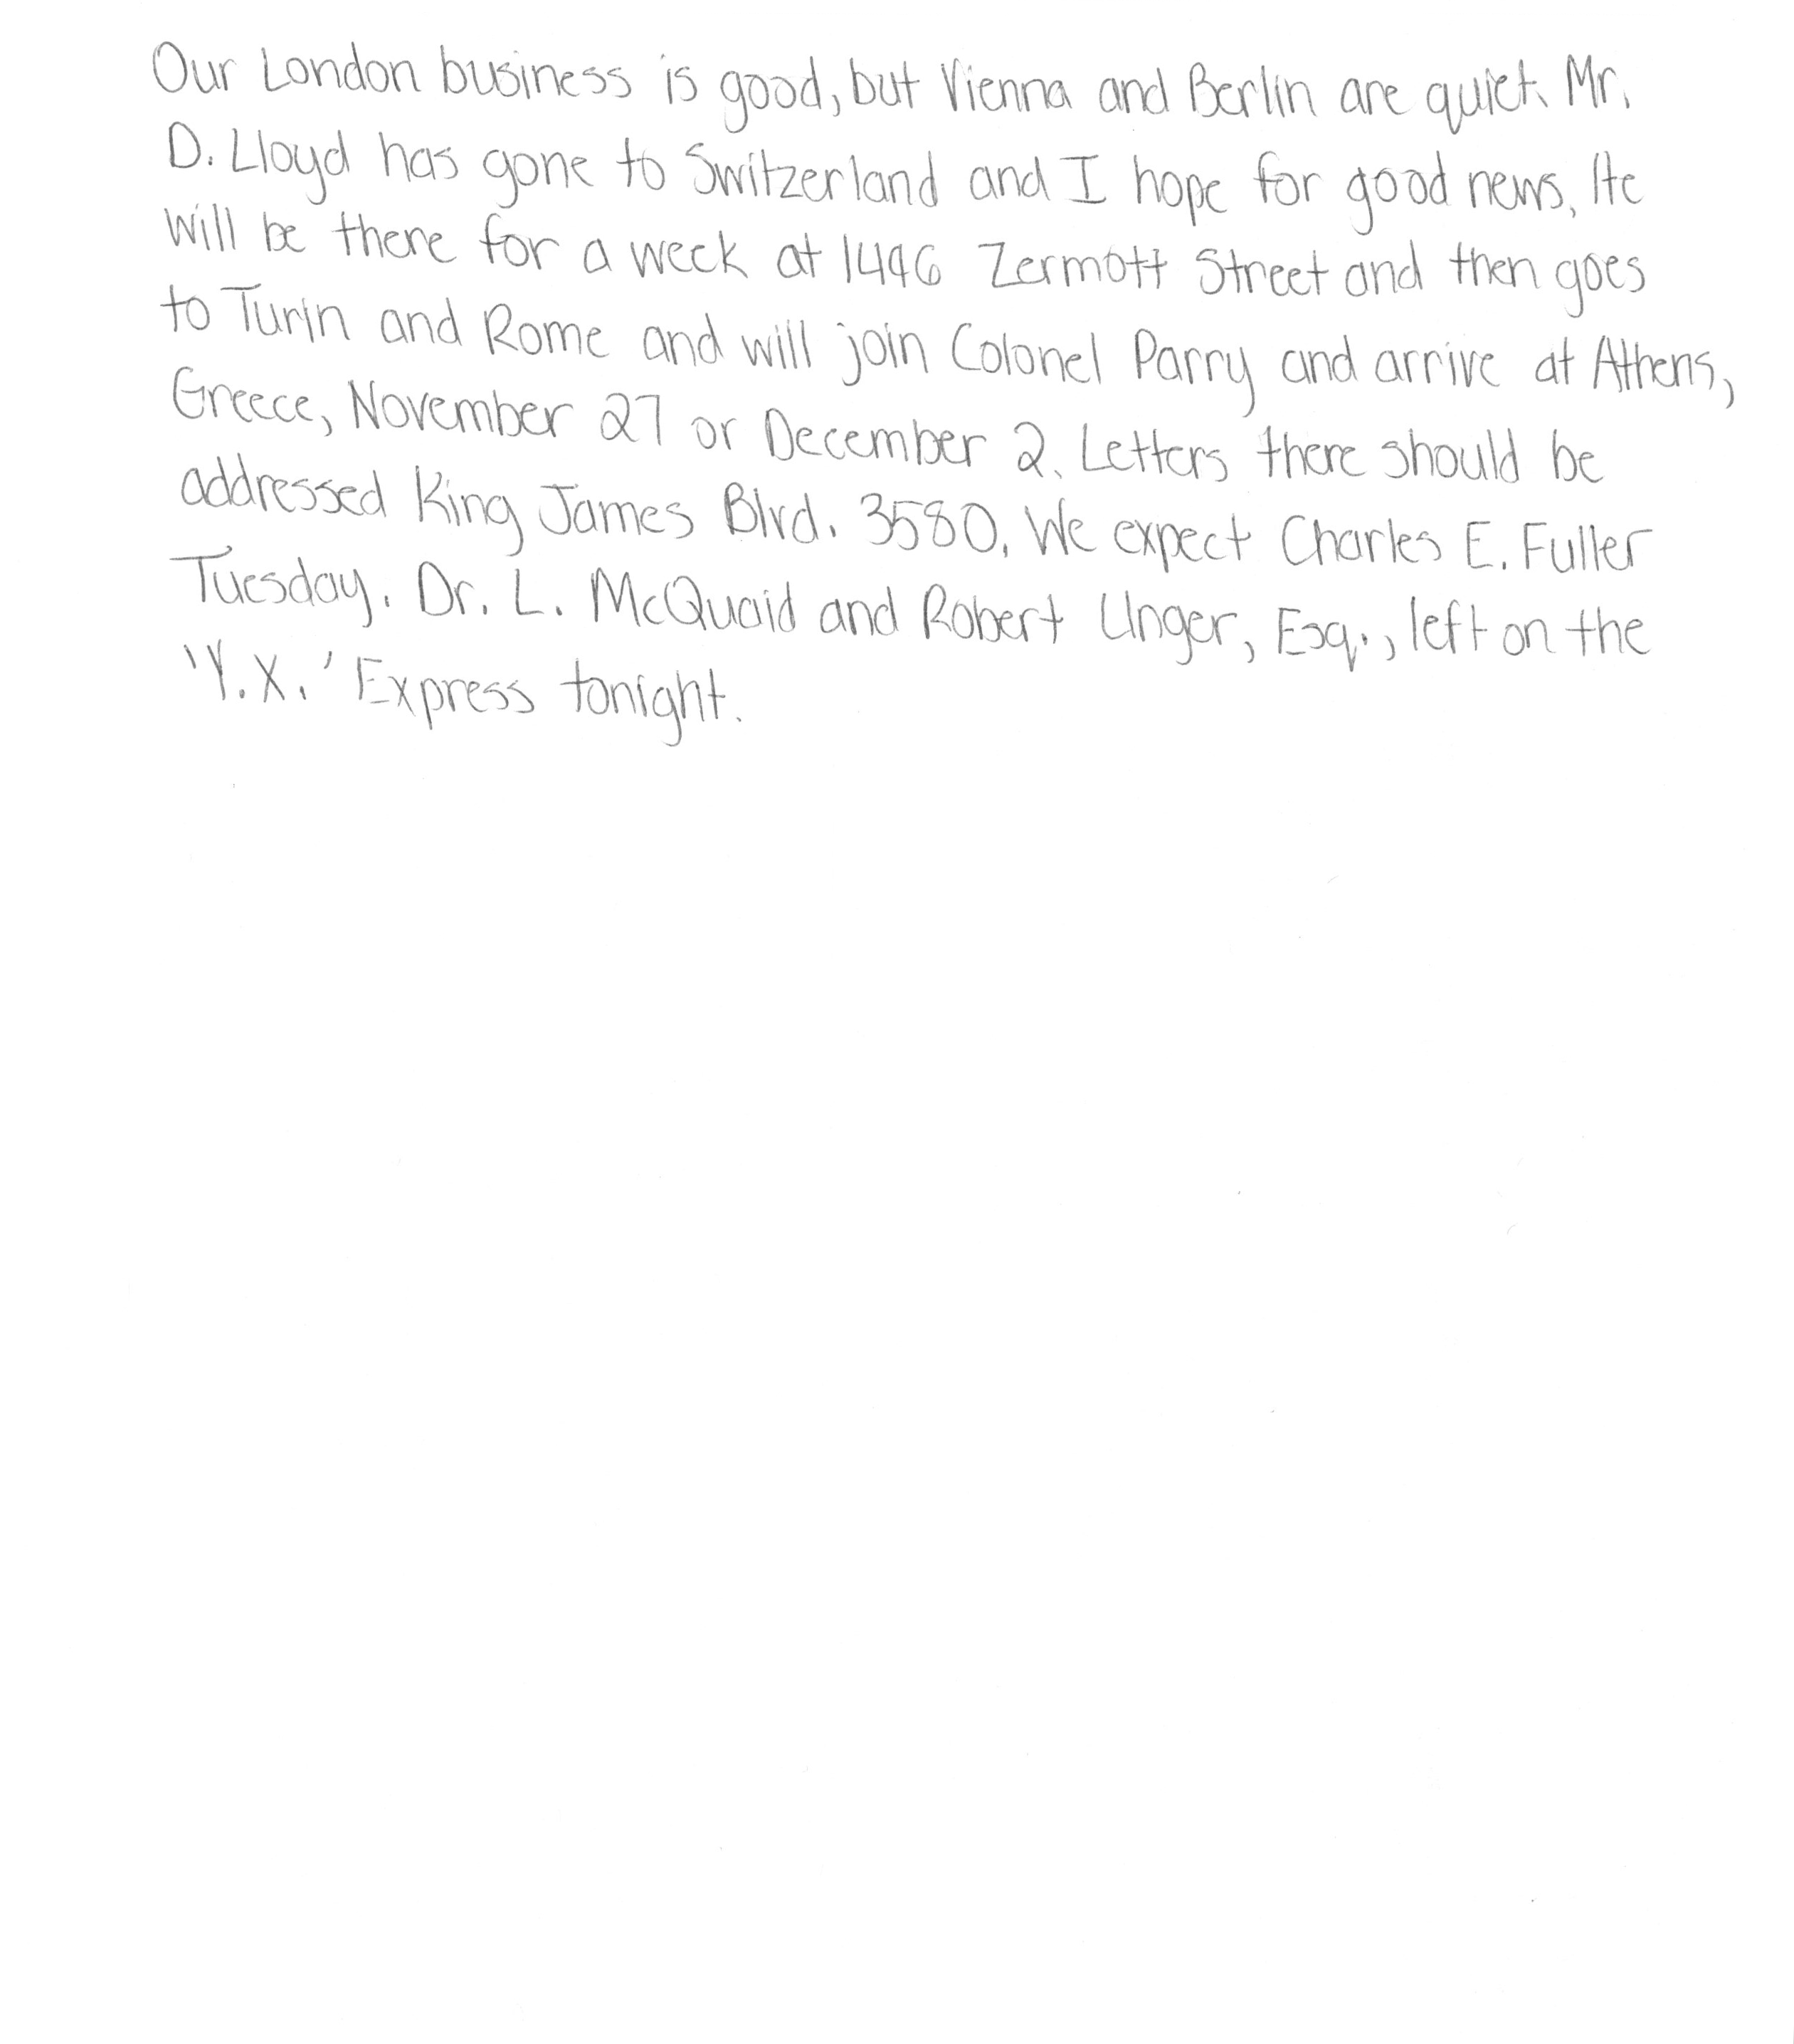 Our London business is good, but Vienna and Berlin are quiet. Mr.
D. Lloyd has gone to Switzerland and I hope for good news. He
will be there for a week at 1496 Zermott Street and then goes
to Turin and Rome and will join Colonel Parry and arrive at Athens,
Greece, November 27 or December 2. Letters there should be
addressed King James Blvd. 3580. We expect Charles E. Fuller
Tuesday. Dr. L. McQuaid and Robert Unger, Esq., left on the
'Y.X.' Express tonight.